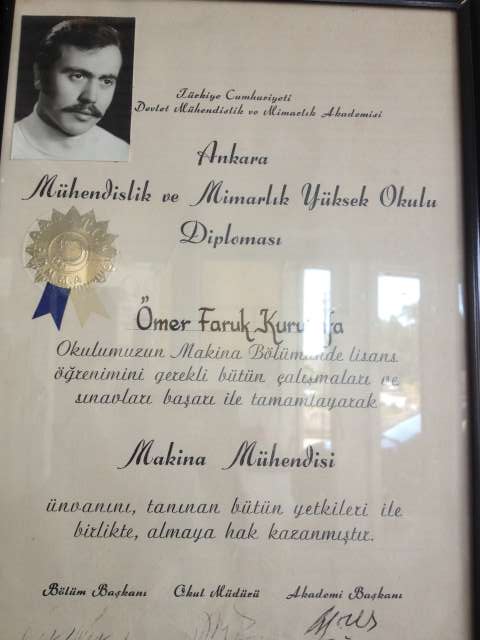 Türkiye Cumhuriyeti
Devlet Mühendislik ve Mimarlık Akademisi
Ankara
Mühendislik ve Mimarlık Yüksek Okulu
Diploması
Ömer Faruk
Okulumuzun Makina Bölümünde lisans
öğrenimini gerekli bütün çalışmaları ve
sınavları başarı ile tamamlayarak
Makina Mühendisi
ünvanını, tanınan bütün yetkileri ile
birlikte, almaya hak kazanmıştır.
Bölüm Başkanı Okul Müdürü Akademi Başkanı